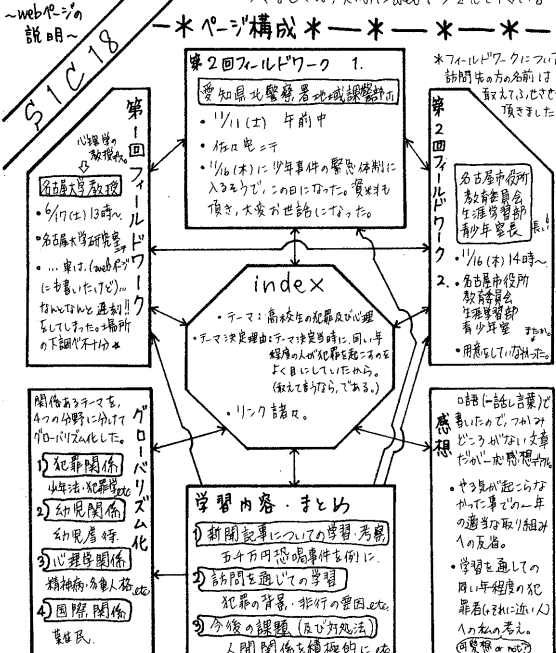 ～webページの
説明～
S1C18
＊ページ構成＊
＊フィールドワークについ
訪問先の方の名前は
敢えてふせさせ
頂きました
第2回フィールドワーク 1.
愛知県北警察署地域課警部
・11/11(土) 午前中
・佐々宅ニテ
・11/16(木)に少年事件の緊急体制に
入るそうで、この日になった。資料も
頂き、大変お世話になった。
第1回フィールドワーク
心理学の
教授
⇩
名古屋大学教授
・6/17(土)13時～
・名古屋大学研究室ニテ
・…実は、(webページ
にも書いたけど)…
なんとなんと遅刻!!
をしてしまった。→場所
の下調べ不十分
第2回フィールドワーク 2.
名古屋市役所
教育委員会
生涯学習部
青少年室長
長い
・11/16(木)14時～
・名古屋市役所
教育委員会
生涯学習部
青少年室
・用意をしていなかった。
index
・テーマ：高校生の犯罪及び心理
・テーマ決定理由：テーマ決定当時に、同い年
程度の人が犯罪を起こすのを
よく目にしていたから。
(敢えて言うなら、である。)
・リンク諸々。
グローバリズム化
関係あるテーマを、
4つの分野に分けて
グローバリズム化した。
1)犯罪関係
少年法・犯罪学etc
2)幼児関係
幼児虐待
3)心理学関係
精神病・多重人格etc
4)国際関係
難民.
学習内容・まとめ
1)新聞記事についての学習・考察
五千万円恐喝事件を例に.
2)訪問を通じての学習
犯罪の背景・非行の要因etc.
3)今後の課題(及び対処法)
人間関係を積極的にetc
感想
口語(=話し言葉)で
書いたので、つかみ
どころがない文章
だが一応感想デアル。
・やる気が起こらな
かった事での一年
の適当な取り組み
への反省。
・学習を通しての
同い年程度の犯
罪者(+それに近い人)
への私の考え。
(可哀想 or not?)